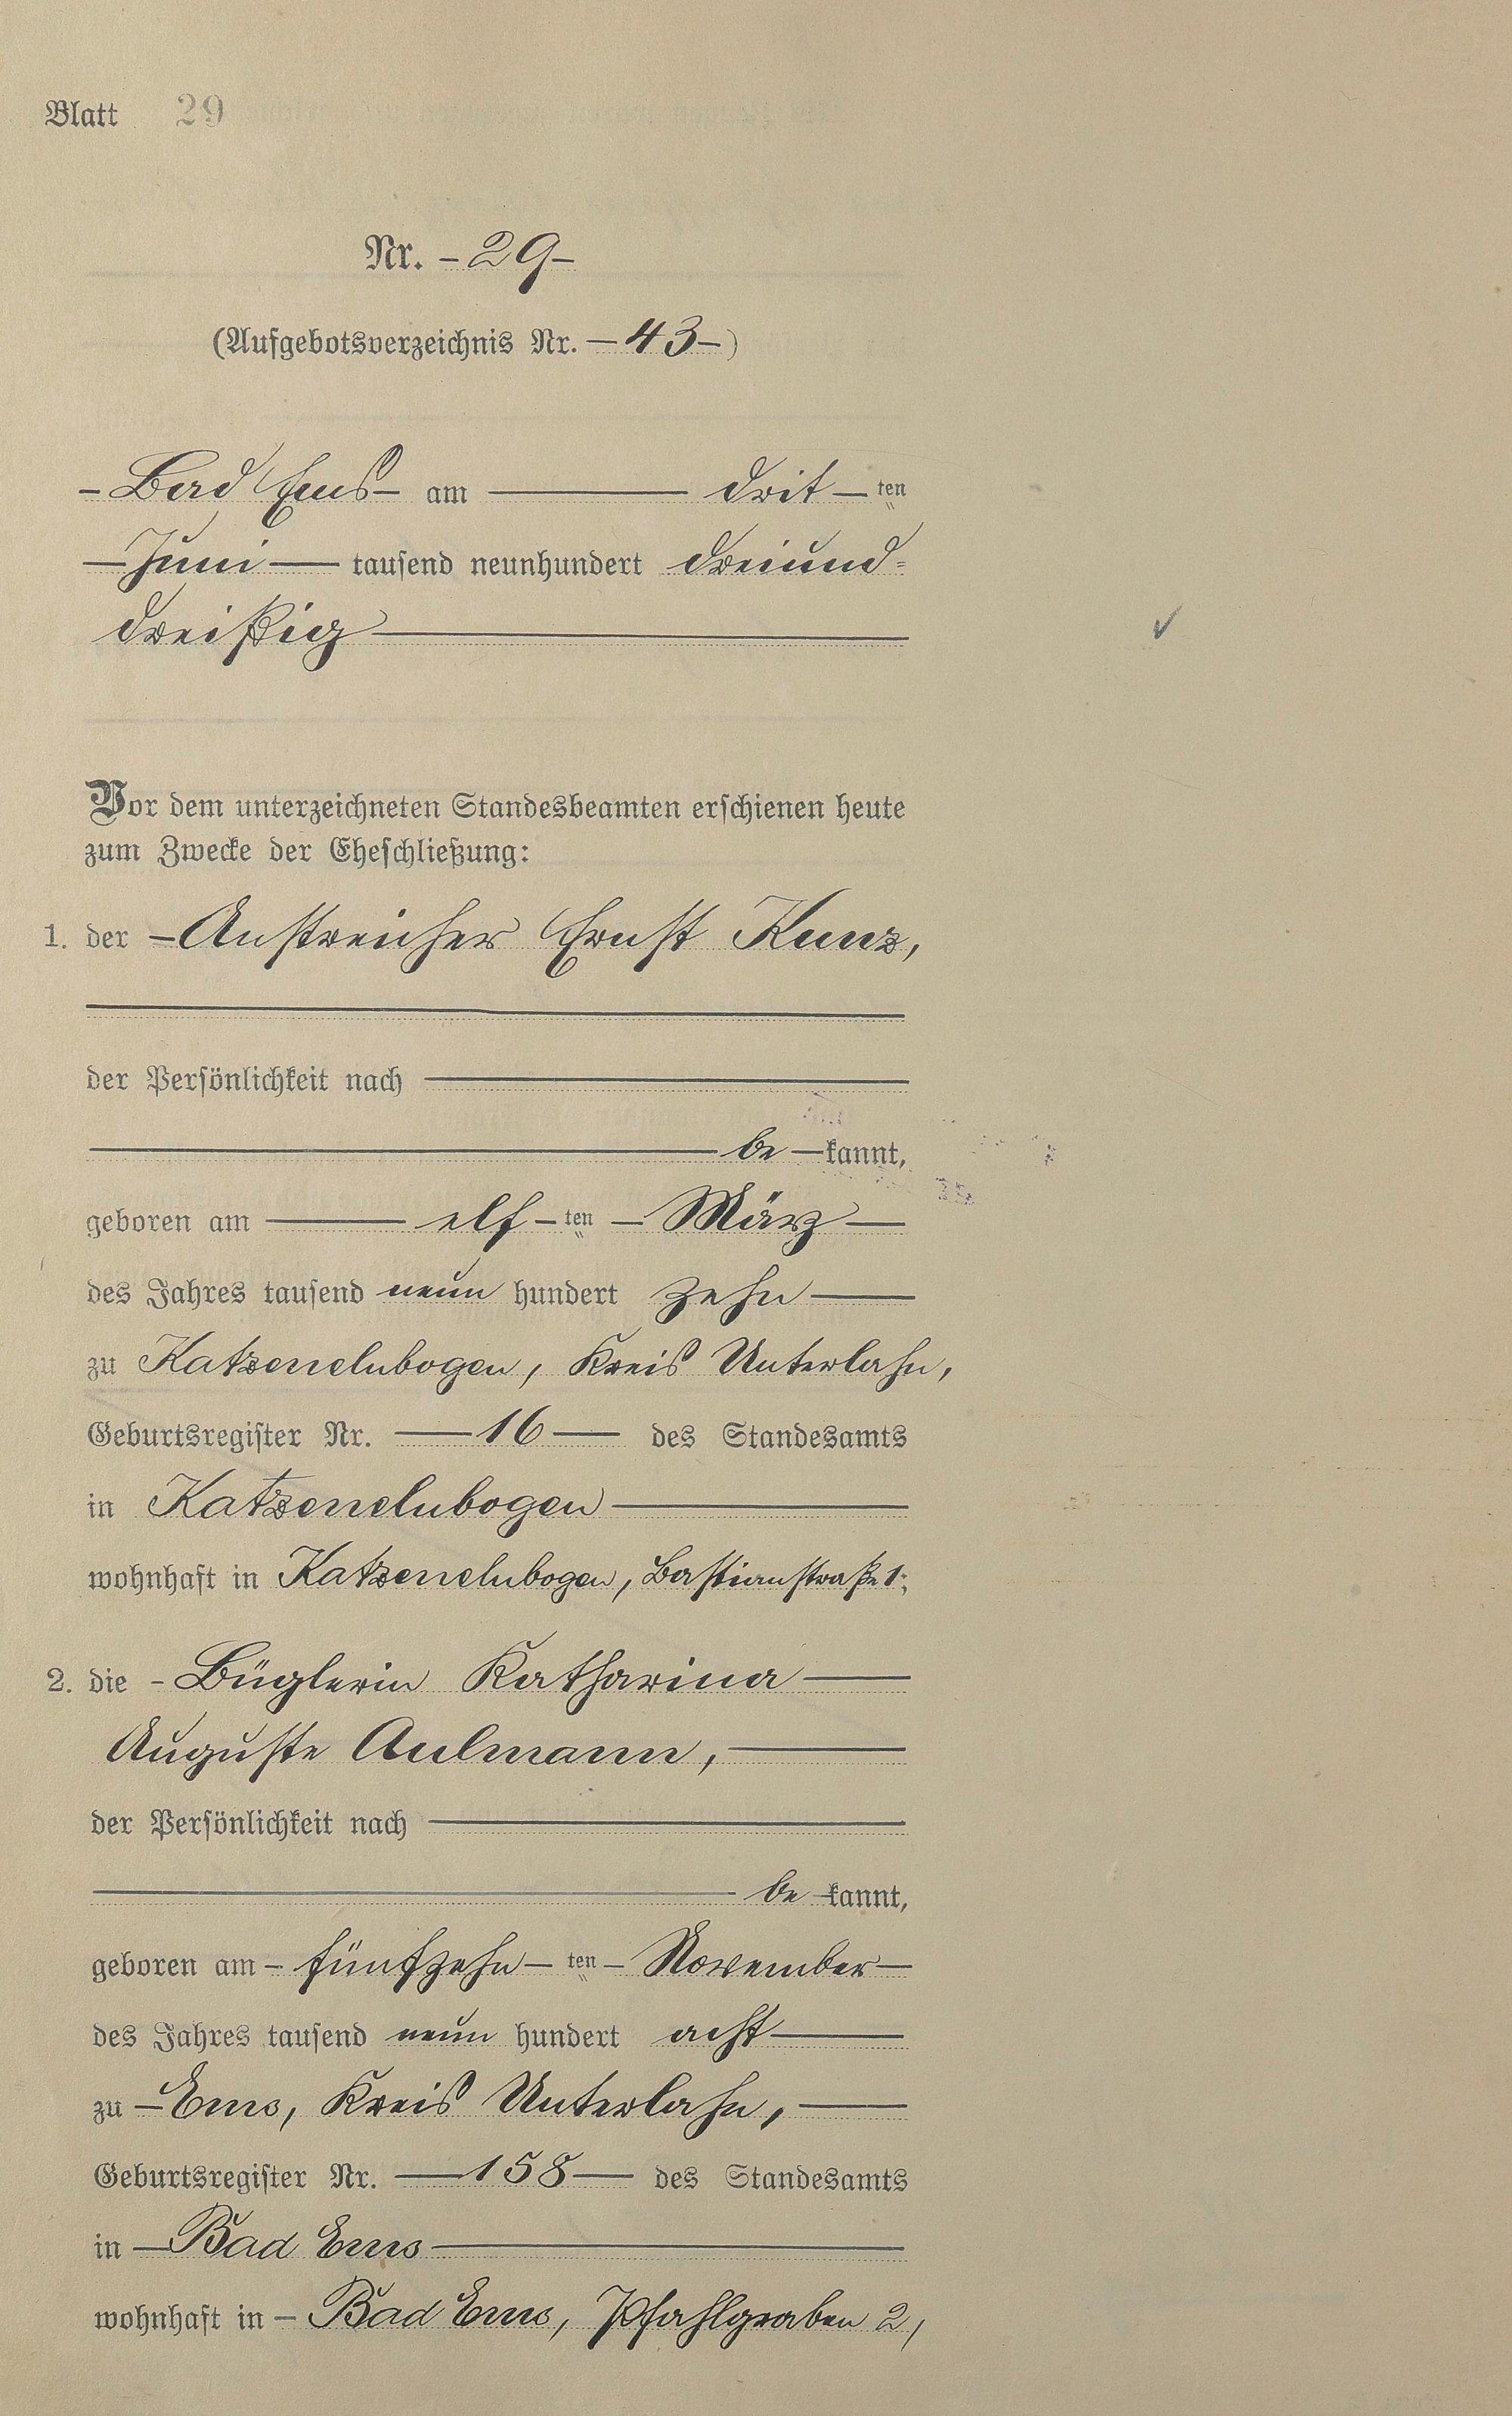 Blatt 29
Nr. - 29 -
(Aufgebotsverzeichnis Nr. — 43 —)
- Bad Ems - am — drit — ten
— Juni — tausend neunhundert dreiund=
dreißig —
Vor dem unterzeichneten Standesbeamten erschienen heute
zum Zwecke der Eheschließung:
1. der — Anstreicher Ernst Kunz,
der Persönlichkeit nach —
— be — kannt,
geboren am — elf — ten — März —
des Jahres tausend neun hundert zehn —
zu Katzenelnbogen, Kreis Unterlahn,
Geburtsregister Nr. — 16 — des Standesamts
in Katzenelnbogen —
wohnhaft in Katzenelnbogen, Bastianstraße 1;
2. die - Büglerin Katharina —
Auguste Aulmann, —
der Persönlichkeit nach —
— be — kannt,
geboren am - fünfzehn — ten — November —
des Jahres tausend neun hundert acht —
zu — Ems, Kreis Unterlahn, —
Geburtsregister Nr. — 158 — des Standesamts
in — Bad Ems —
wohnhaft in — Bad Ems, Pfahlgraben 2,